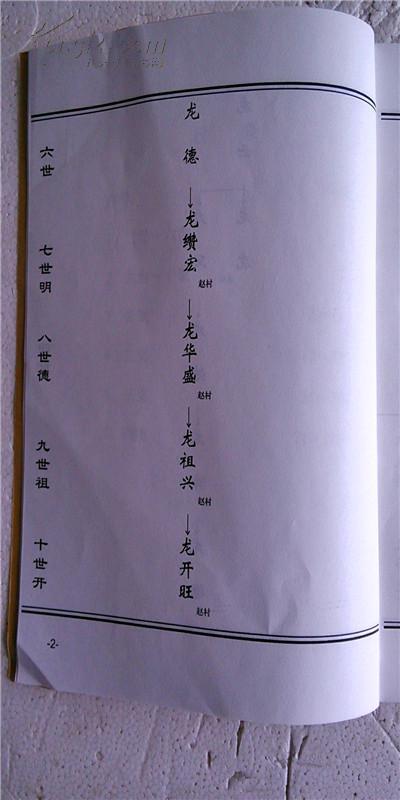 六世
七世明
八世德
九世祖
十世开
龙德
→龙缵宏
赵村
→龙华盛
赵村
→龙祖兴
赵村
→龙开旺
赵村
-2-